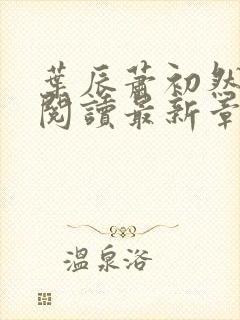 葉辰蕭初然
閱讀最新章
溫泉浴